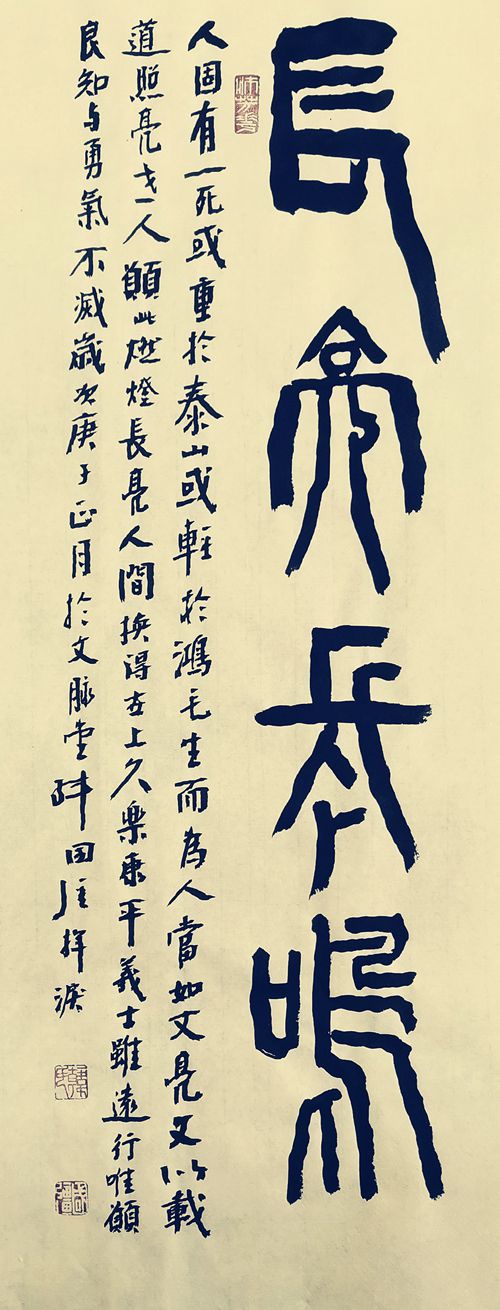 長亮長鳴
人固有一死或重於泰山或輕於鴻毛生而為人當如文亮文以載
道照亮一人願此燃燈長亮人間換得世上久樂康平義士雖遠行唯願
良知与勇氣不滅歲次庚子正月於文脉堂国揮淚